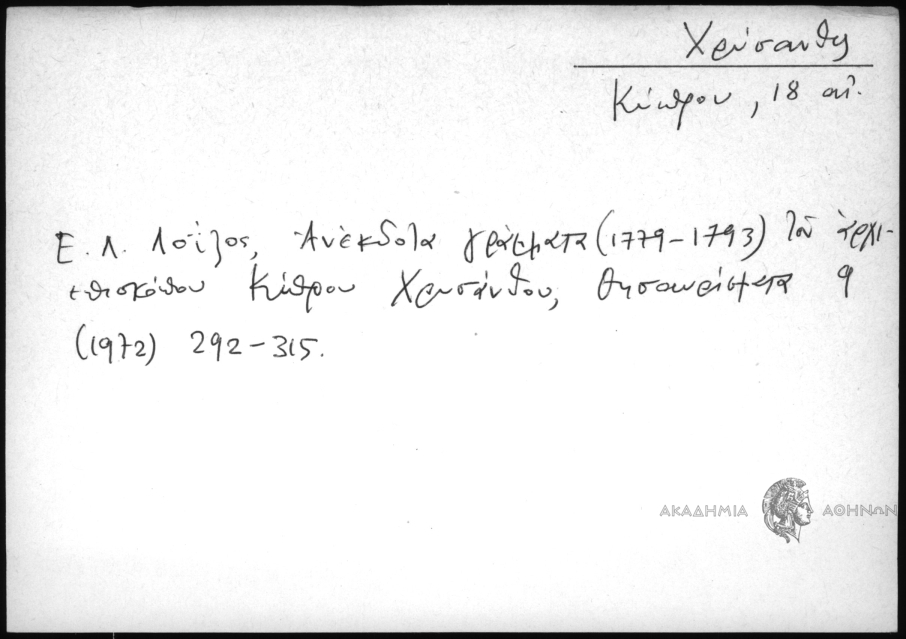 Χρύσανθος
Κύπρου, 18 αἰ.
Ε. Λ. Λοΐζος, Ἀνέκδοτα γράμματα (1779-1793) τοῦ ἀρχι-
επισκόπου Κύπρου Χρυσάνθου, Θησαυρίσματα 9
(1972) 292-315.
ΑΚΑΔΗΜΙΑ ΑΘΗΝΩΝ